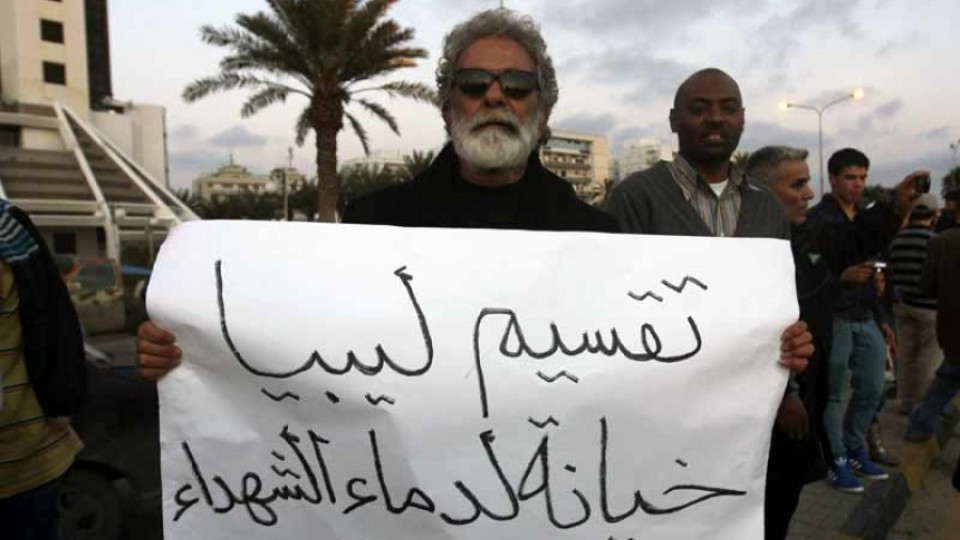 تقسيم ليبيا
خيانة لدماء الشهداء